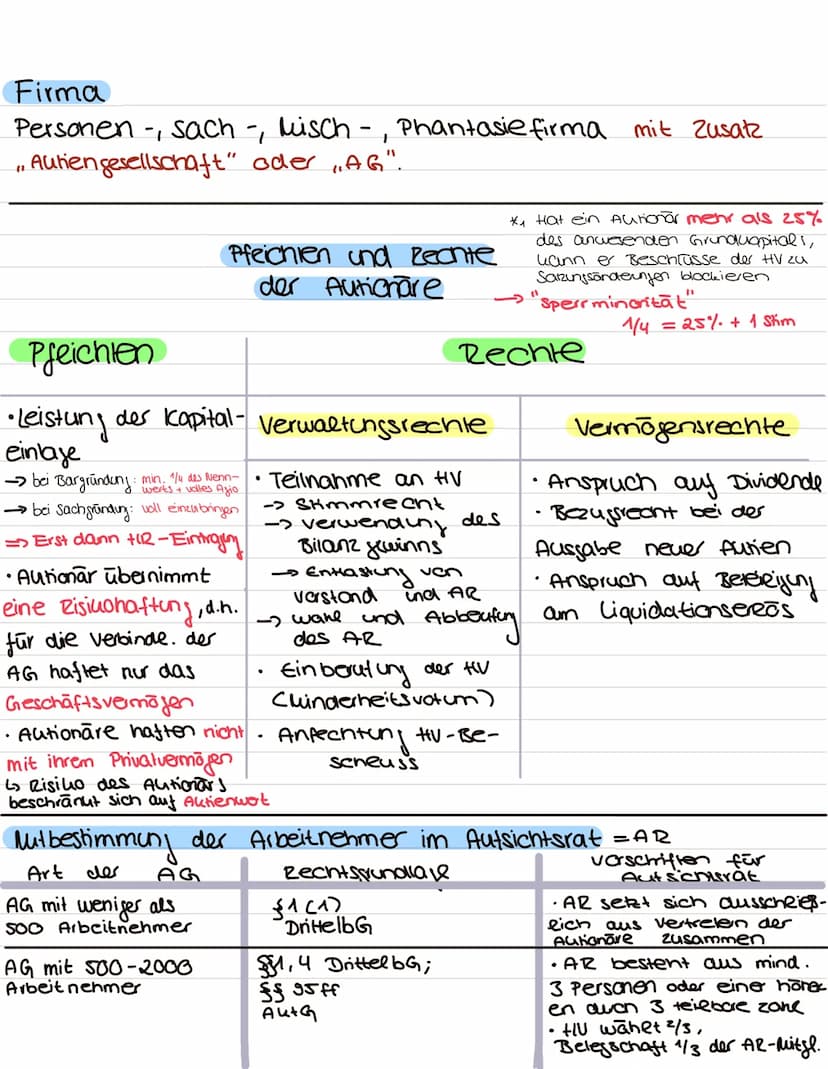 Firma
Personen-, Sach-, Misch-, Phantasiefirma mit Zusatz
„Aktiengesellschaft" oder „AG".
*1 Hat ein Aktionär mehr als 25%
des anwesenden Grundkapitals,
kann er Beschlüsse der HV zu
Satzungsänderungen blockieren
→ "Sperrminorität"
1/4 = 25% + 1 Stim
Pflichten und Rechte
der Aktionäre
Pflichten
Rechte
• Leistung der Kapital-
einlage
→ bei Bargründung: min. 1/4 des Nenn-
werts + volles Agio
→ bei Sachgründung: voll einzubringen
=> Erst dann HR-Eintragung
• Aktionär übernimmt
eine Risikohaftung, d.h.
für die Verbindl. der
AG haftet nur das
Geschäftsvermögen
• Aktionäre haften nicht
mit ihrem Privatvermögen
↳ Risiko des Aktionärs
beschränkt sich auf Aktienwert
Verwaltungsrechte
• Teilnahme an HV
-> Stimmrecht
-> Verwendung des
Bilanzgewinns
→ Entlastung von
Vorstand und AR
-> Wahl und Abberufung
des AR
• Einberufung der HV
(Minderheitsvotum)
• Anfechtung HV-Be-
schluss
Vermögensrechte
• Anspruch auf Dividende
• Bezugsrecht bei der
Ausgabe neuer Aktien
• Anspruch auf Beteiligung
am Liquidationserlös
Mitbestimmung der Arbeitnehmer im Aufsichtsrat = AR
Art der AG
Rechtsgrundlage
Vorschriften für
Aufsichtsrat
AG mit weniger als
500 Arbeitnehmer
§1 (1)
DrittelbG
• AR setzt sich ausschließ-
lich aus Vertretern der
Aktionäre zusammen
AG mit 500-2000
Arbeitnehmer
§§1, 4 DrittelbG;
§§ 95ff
AktG
• AR besteht aus mind.
3 Personen oder einer höher
en durch 3 teilbare Zahl
• HV wählt 2/3,
Belegschaft 1/3 der AR-Mitgl.